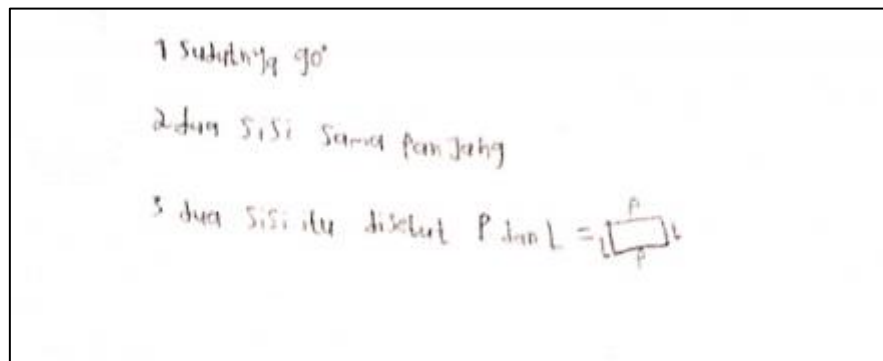 1 Sudutnya 90°
2 dua sisi sama panjang
3 dua sisi itu disebut P dan L =
P
L L
P